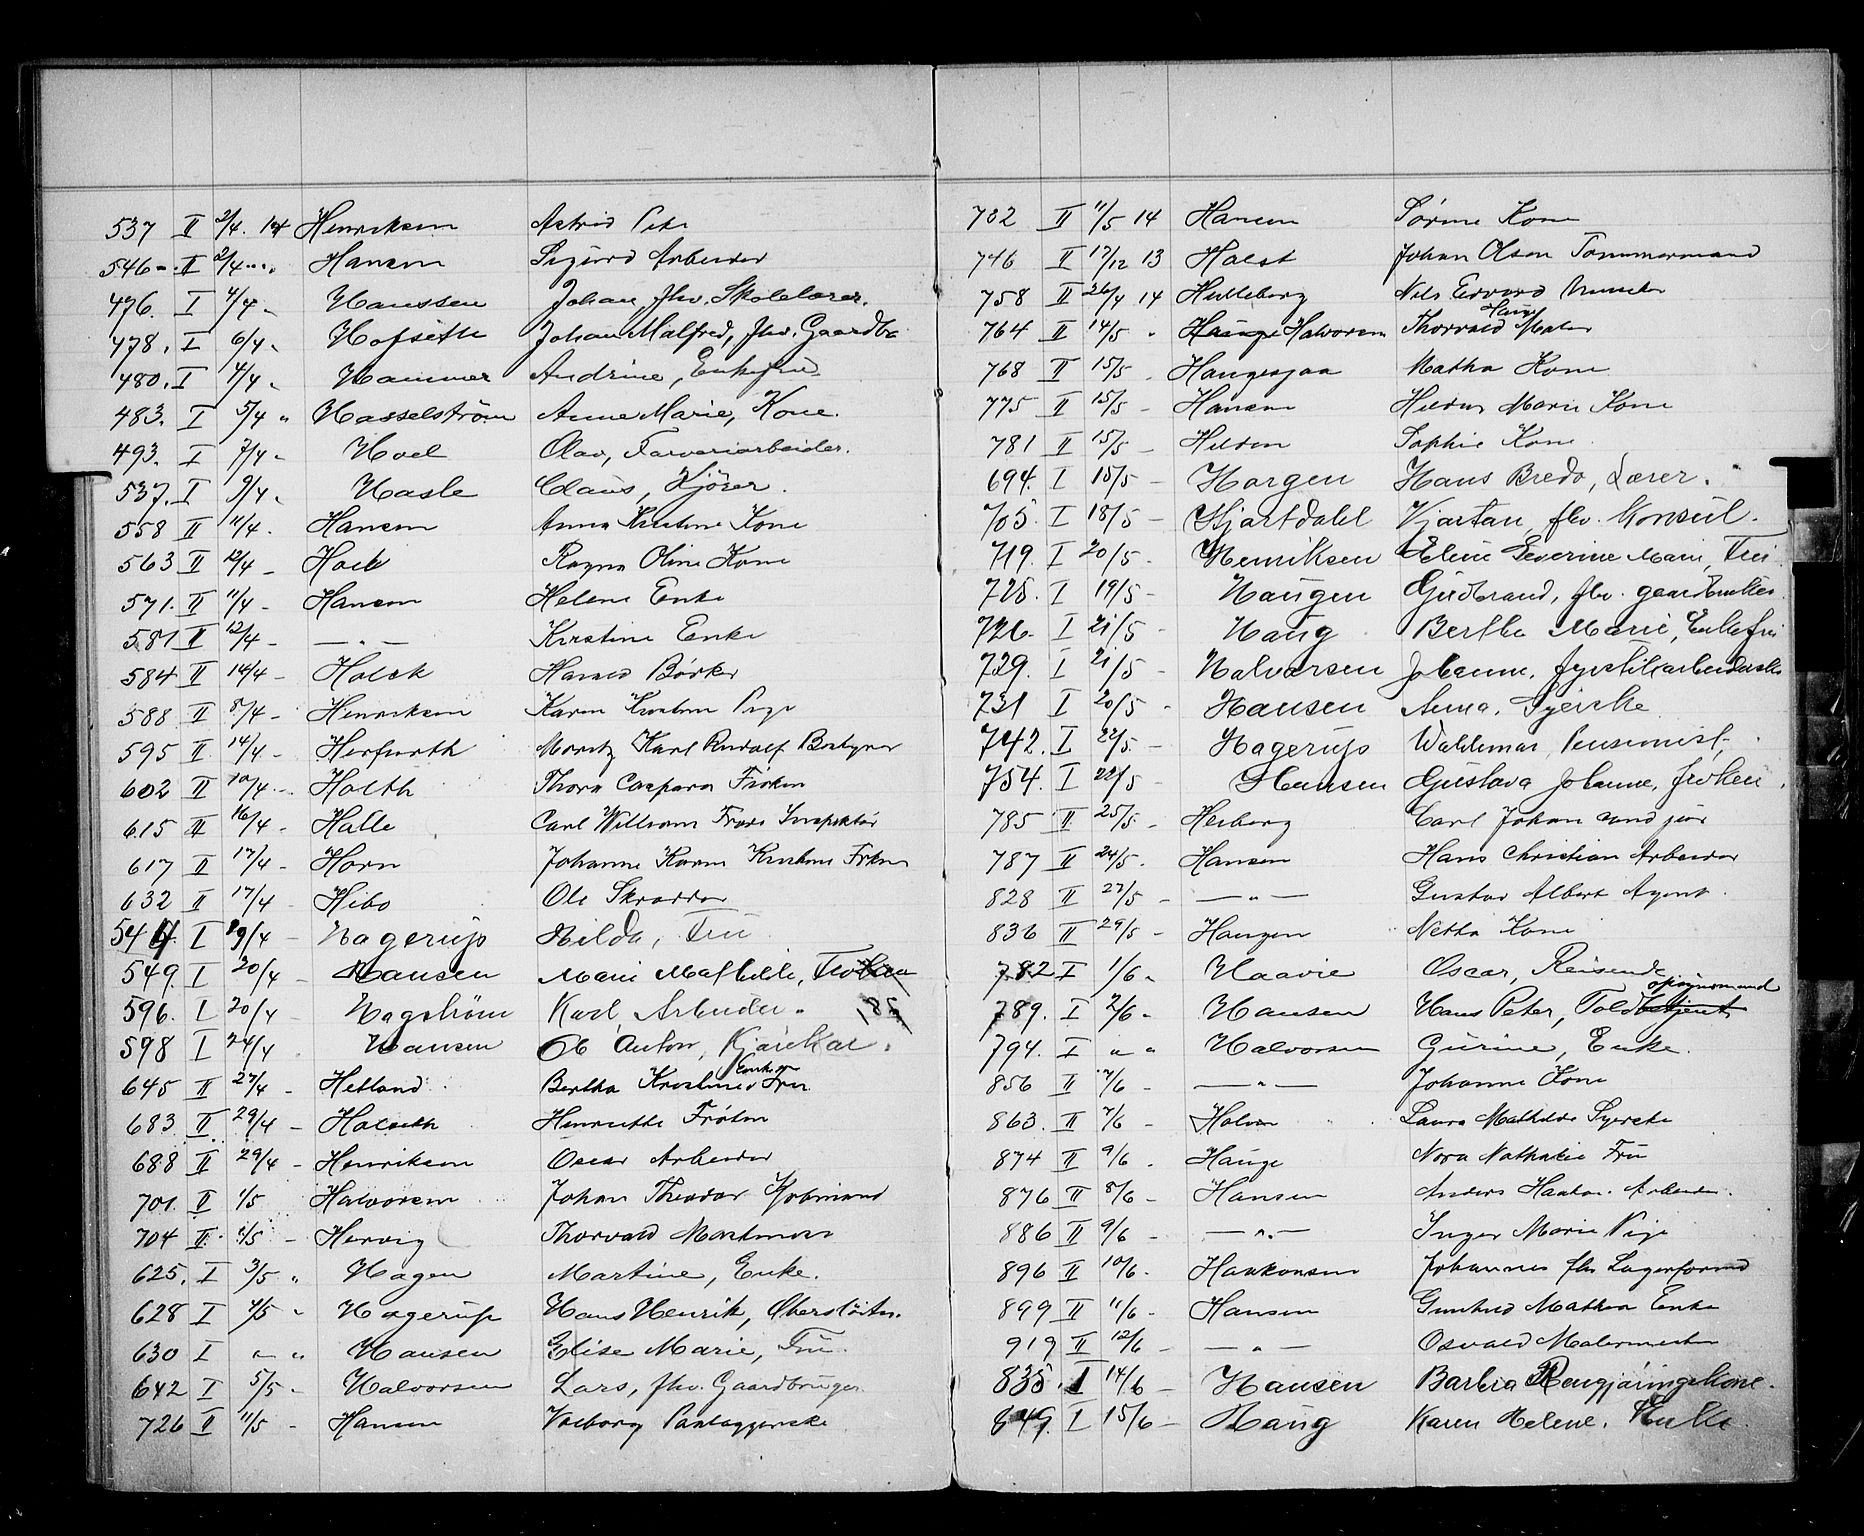 537 II 2/4 14 Henriksen Astrid
546 II 2/4 Hansen Sigurd Arbeider
476. I 4/4 Hanssen Johan, fhv. Skolelærer.
478. I 6/4 Hofseth Johan Malfred, fhv. Gaardbr
480. I 4/4 Hammer Andrine, Enkefru
483. I 5/4 " Hasselstrøm Anne Marie, Kone.
493. I 7/4 Hoel Olav, Farveriarbeider.
537. I 9/4 Hasle Claus, Kjører.
558 II 11/4 Hansen Anna Kristine Kone
563 II 12/4 - Ragna Oline Kone
571. II 11/4 - Hansen Helene Enke
581 II 12/4 - — " — Kirstine Enke
584 II 14/4 - Holck Harald Bødker
588 II 8/4 - Henriksen Karen Kirstine Pige
595 II 14/4 - Herfurth Moritz Karl Rudolf Bestyrer
602 II 10/4 - Holth Thora Caspara Frøken
615 II 16/4 - Halle Carl William Inspektør
617 II 17/4 - Horn Johanne Karen Kristine Frkn
632 II 17/4 - Hibo Ole Skrædder
544. I 19/4 - Hagerup Hilda, Fru
549. I 20/4 - Hansen Marie Mathilde, Frøken
596. I 20/4 Hagstrøm Karl, Arbeider. 185
598 I 24/4 Hansen Ole Anton, Kjørekar.
645 II 27/4 - Hetland Bertha Kristine Enkefru
683 II 29/4 - Holseth Henriette Frøken
688 II 29/4 - Henriksen Oscar Arbeider
701. II 1/5 Halvorsen Johan Theodor Kjøbmand
704 II. 1/5 - Hervig Thorvald
625. I 3/5 " Hagen Martine, Enke.
628 I 4/5 " Hagerup Hans Henrik, Oberstløitn.
630 I " " Hansen Elise Marie, Fru.
642 I 5/5 - Halvorsen Lars, fhv. Gaardbruger
726 II 11/5 - Hansen Valborg
732 II 11/5 14 Hansen Sørine Kone
746 II 17/12 13 Holst Johan Olson Tømmermand
758 II 26/4 14 Hulleborg Nils Edvard
764 II 14/5 " Hauge Halvorsen Thorvald Hauge Maler
768 II 15/5 - Haugesjaa Mathea Kone
775 II 15/5 - Hansen Hildur Marie Kone
781 II 15/5 - Hilden Sophie Kone
694. I 15/5 - Horgen Hans Bredo, Lærer.
705. I 18/5 - Hjartdahl Kjartan, fhv. Konsul.
719. I 20/5. Henriksen Eline Severine Marie, Fru
725. I 19/5 - Haugen Gudbrand, fhv. gaardbruker
726. I 21/5 Haug Berthe Marie, Enkefru
729. I 21/5 - Halvorsen Johanne, fyrstikarbeiderske
731 I 20/5 - Hansen Anna, Syerske
742. I 22/5 - Hagerup Waldemar, Pensionist.
754. I 22/5 Hansen Gustava Johanne, frøken.
785 II 25/5 - Heiberg Carl Johan cand jur
787 II 24/5. Hansen Hans Christian Arbeider
828 II 27/5 - — " — Gustav Albert Agent.
836 II 29/5 - Haugen Netha Kone
782 I 1/6 " Haavie Oscar, Reisende
789. I 2/6 " Hansen Hans Peter, Toldbetjent opsynsmand
794. I " " Halvorsen Gurine, Enke.
856 II 7/6 - — " — Johanne Kone
863. II 7/6 - Holven Laura Mathilde Syerske
874 II 9/6. Hauge Nora Nathalie Fru
876 II 8/6 - Hansen Anders Haakon. Arbeider.
886 II 9/6 - — " — Inger Marie Pige
896 II 10/6. Haakonsen Johannes fhv Lagerformd
899 II 11/6 - Hansen Gunhild Mathea Enke
919 II 12/6 - — " — Osvald Malermester
835. I 14/6 - Hansen Barbra Rengjøringskone.
849. I 15/6 - Haug Karen Helene,